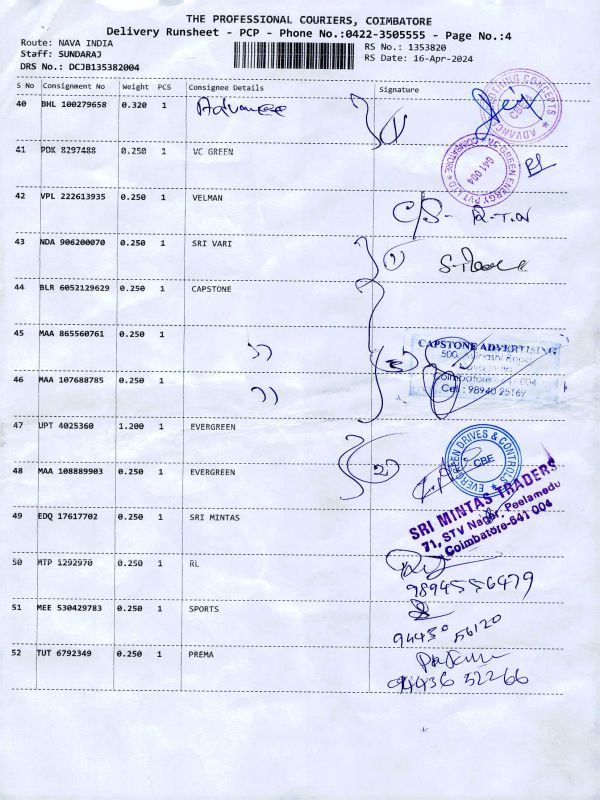 THE PROFESSIONAL COURIERS, COIMBATORE
Delivery Runsheet - PCP - Phone No.:0422-3505555 - Page No.:4
Route: NAVA INDIA
RS No.: 1353820
Staff: SUNDARAJ
RS Date: 16-Apr-2024
DRS No.: DCJB135382004
S No Consignment No Weight PCS Consignee Details Signature
40 BHL 100279658 0.320 1 Advance
41 PDK 8297488 0.250 1 VC GREEN
VC GREEN ENERGY PVT LTD * COIMBATORE
641 004
42 VPL 222613935 0.250 1 VELMAN
C/S-
43 NDA 906200070 0.250 1 SRI VARI
44 BLR 6052129629 0.250 1 CAPSTONE
45 MAA 865560761 0.250 1 ))
CAPSTONE ADVERTISING
Coimbatore - 641 004
Cell : 98940 25167
46 MAA 107688785 0.250 1 ))
47 UPT 4025360 1.200 1 EVERGREEN
EVERGREEN DRIVES & CONTROLS *
CBE
48 MAA 108889903 0.250 1 EVERGREEN
49 EDQ 17617702 0.250 1 SRI MINTAS
SRI MINTAS TRADERS
71, STV Nagar, Peelamedu
Coimbatore-641 004
50 MTP 1292970 0.250 1 RL
9894556479
51 MEE 530429783 0.250 1 SPORTS
94430 56120
52 TUT 6792349 0.250 1 PREMA
94436 52266